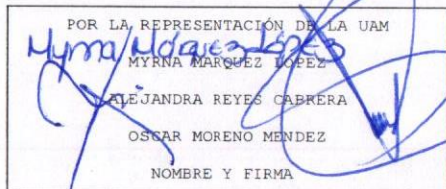 POR LA REPRESENTACIÓN DE LA UAM
Myrna Márquez López
MYRNA MARQUEZ LOPEZ
ALEJANDRA REYES CABRERA
OSCAR MORENO MENDEZ
NOMBRE Y FIRMA